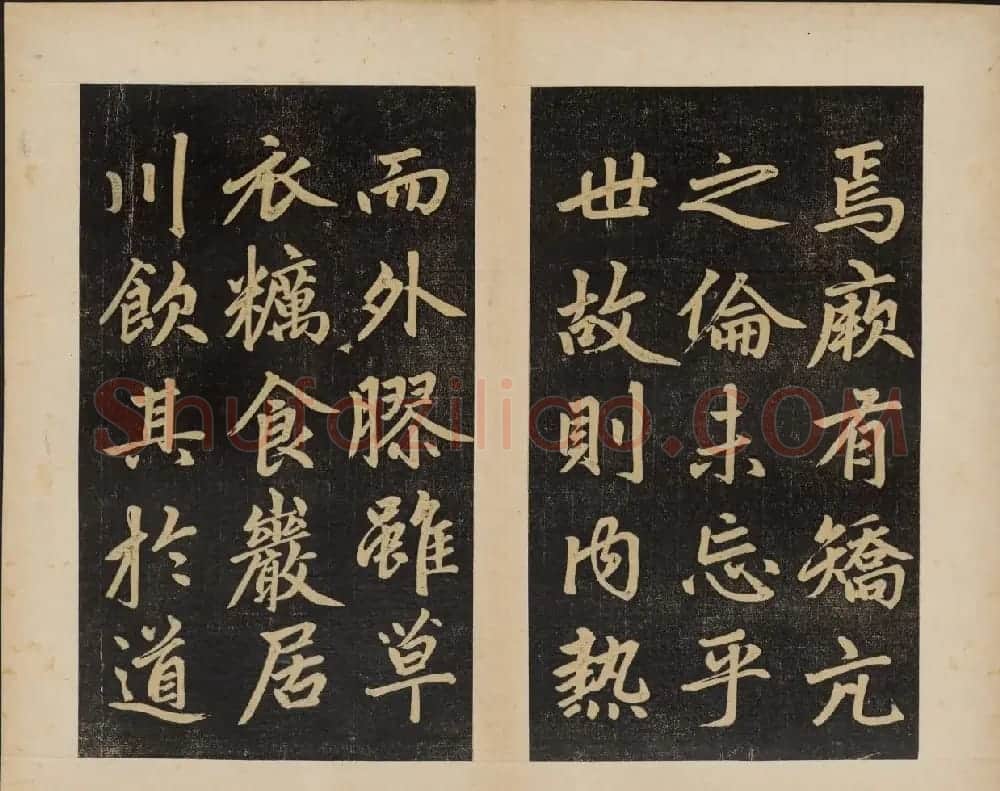 焉厥有矯亢
之倫未忘乎
世故則內熱
而外膠雖草
衣糲食巖居
川飲其於道
Shufaziliao.com